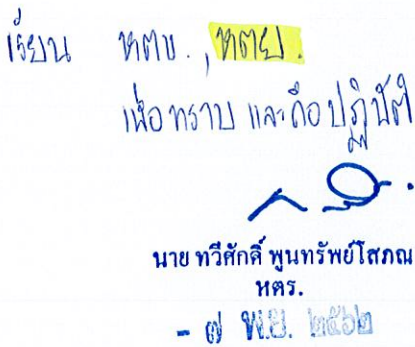 เรียน หตข., หตย.
เพื่อทราบ และถือปฏิบัติ
นาย ทวีศักดิ์ พูนทรัพย์โสภณ
หตร.
- ๗ พ.ย. ๒๕๖๒